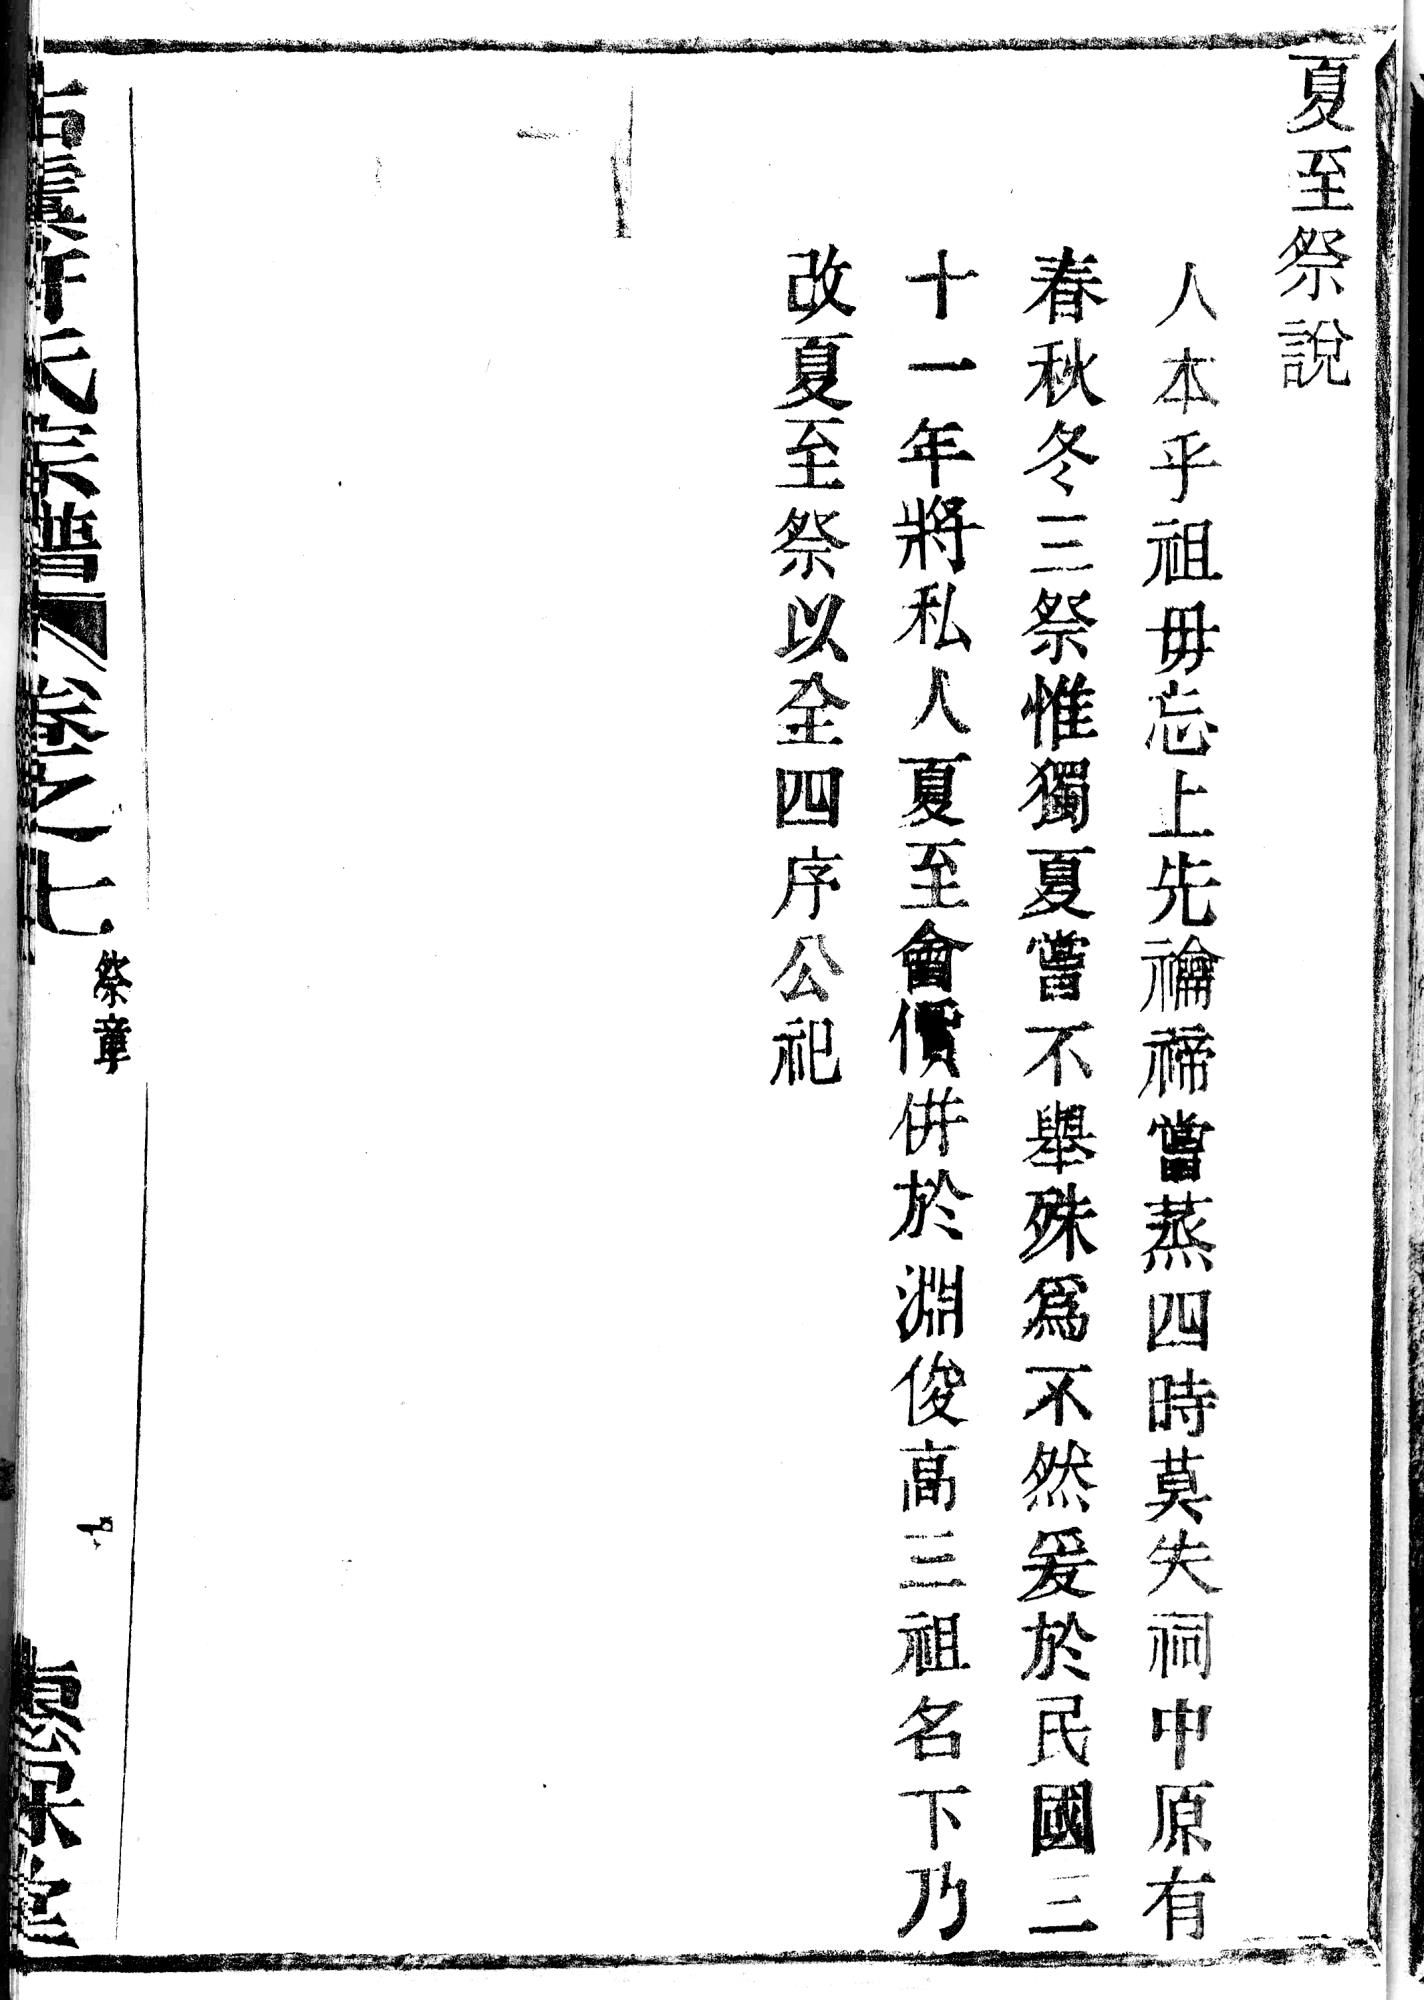 夏至祭說
人本乎祖毋忘上先禴禘嘗蒸四時莫失祠中原有
春秋冬三祭惟獨夏嘗不舉殊爲不然爰於民國三
十一年將私人夏至會價併於淵俊高三祖名下乃
改夏至祭以全四序公祀
氏宗譜 卷之七
祭章